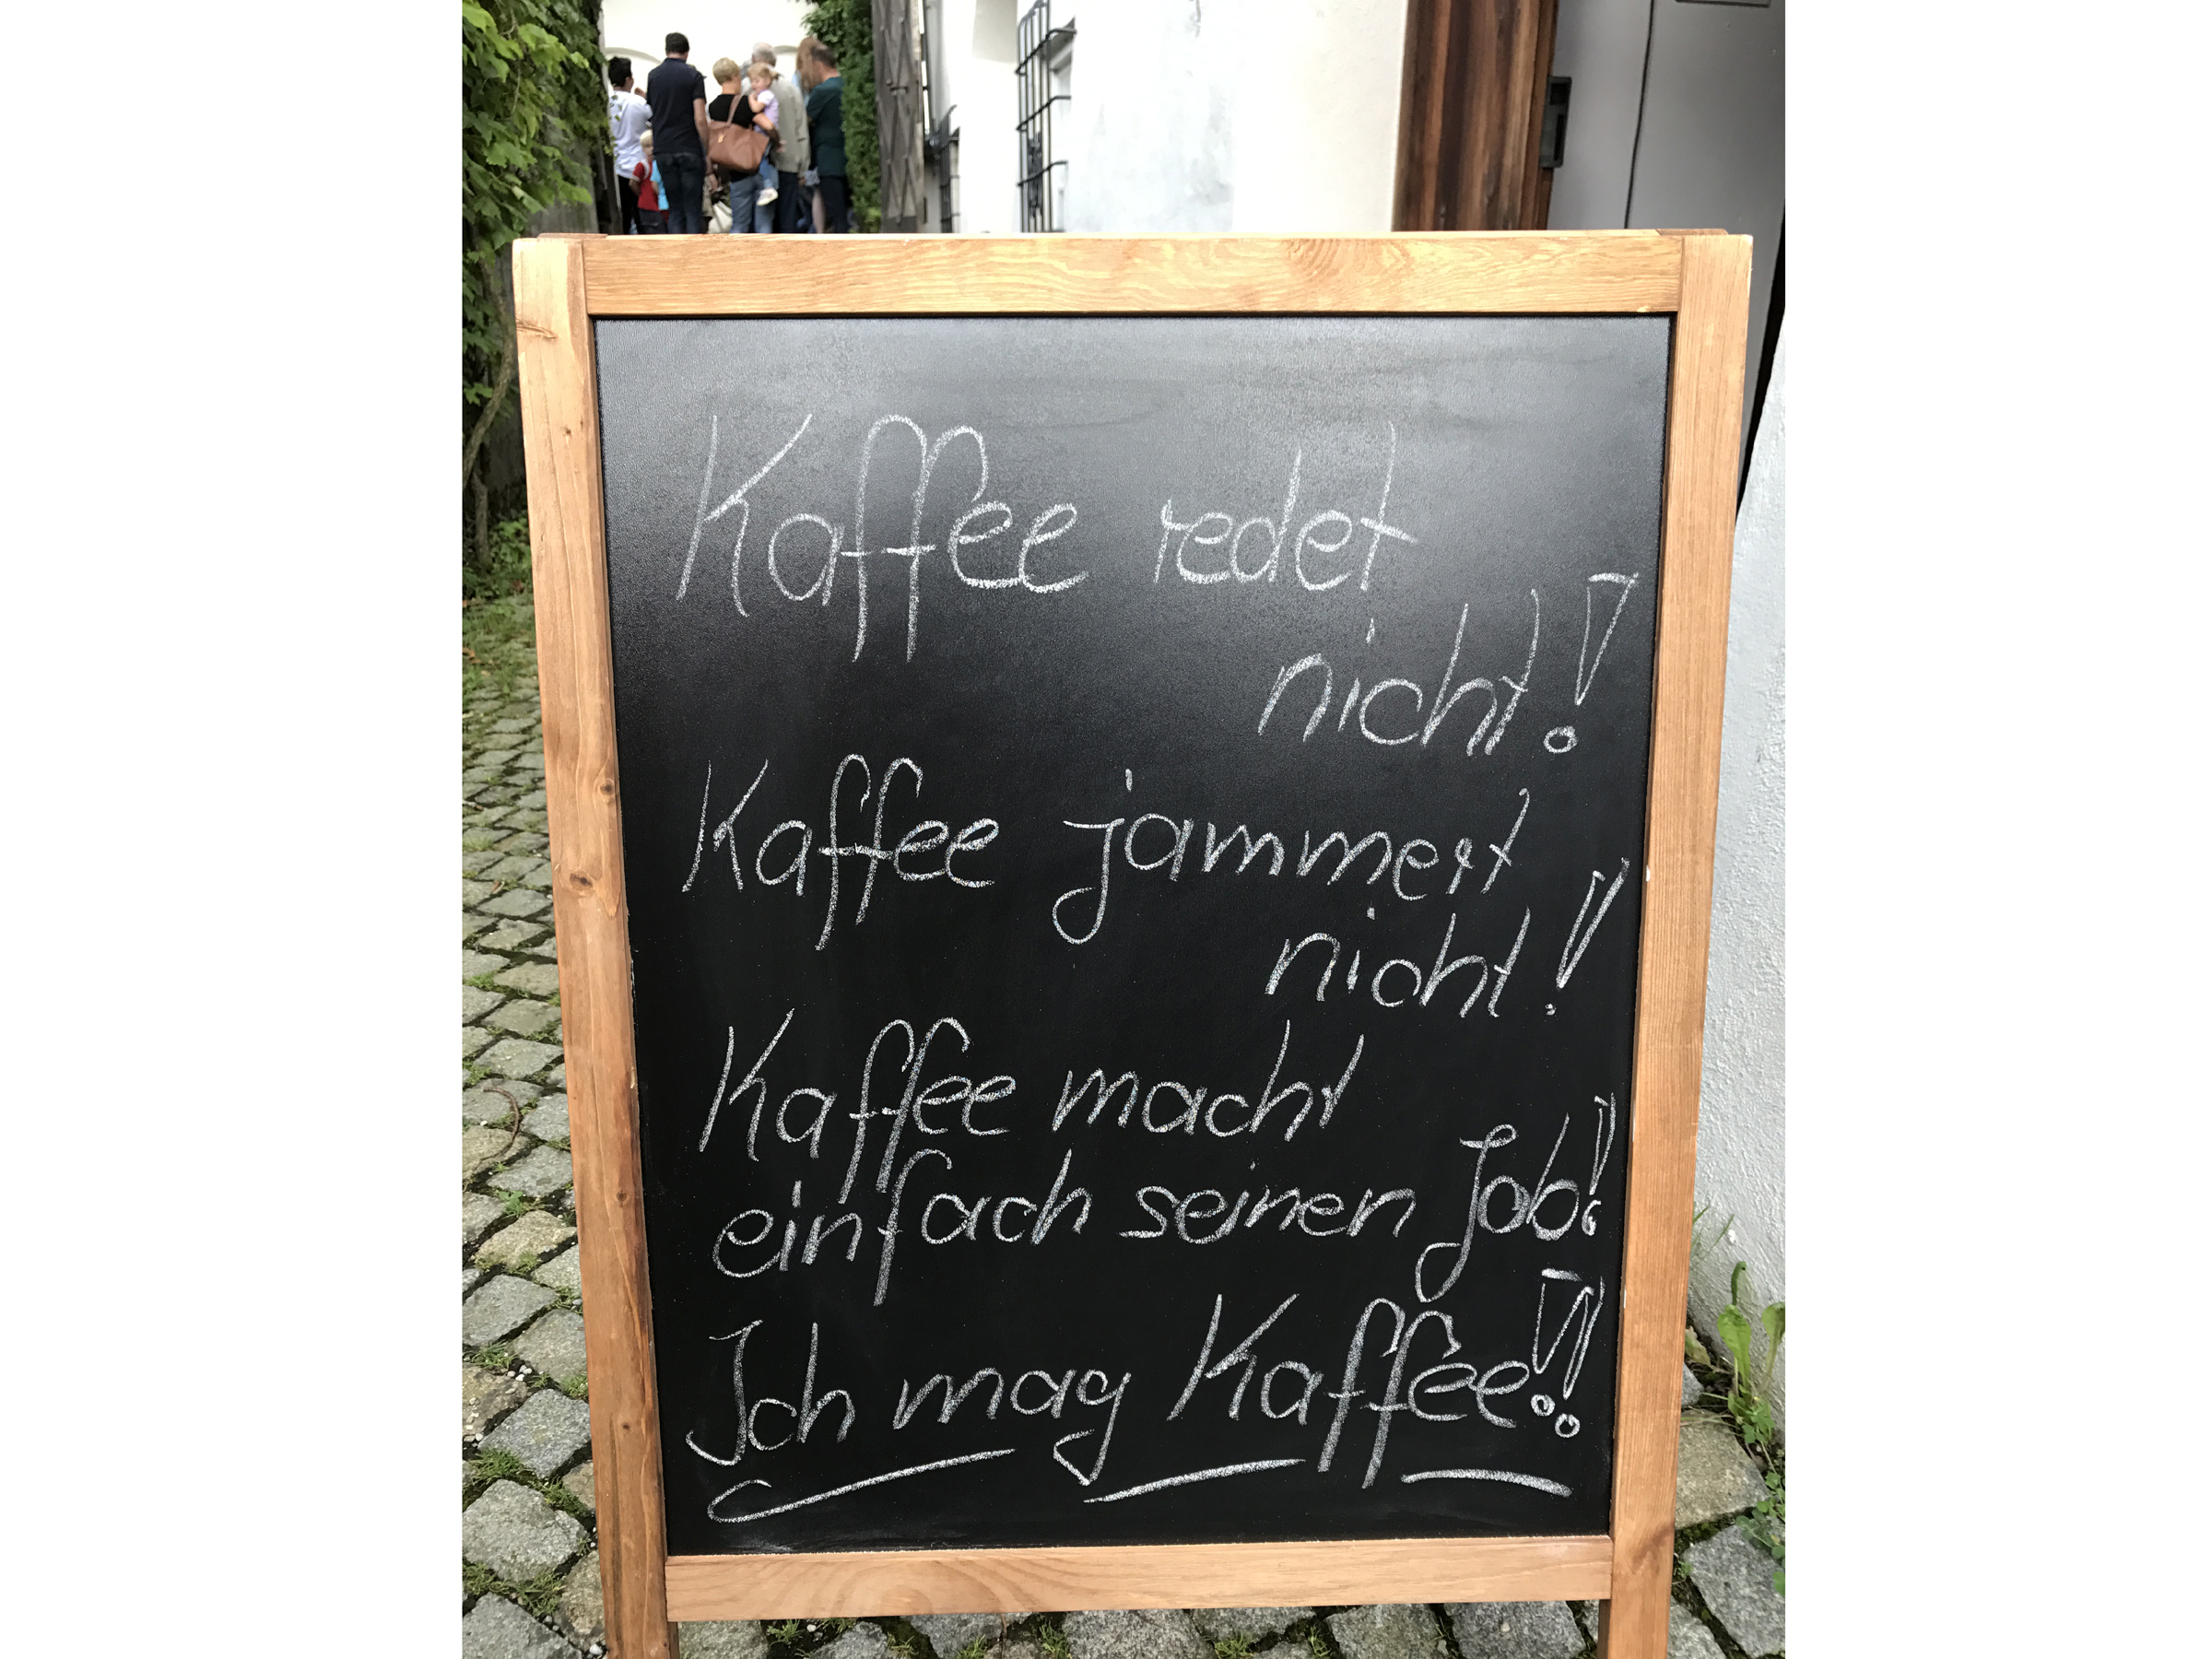 Kaffee redet
nicht!
Kaffee jammert
nicht!
Kaffee macht
einfach seinen Job!
Ich mag Kaffee!!